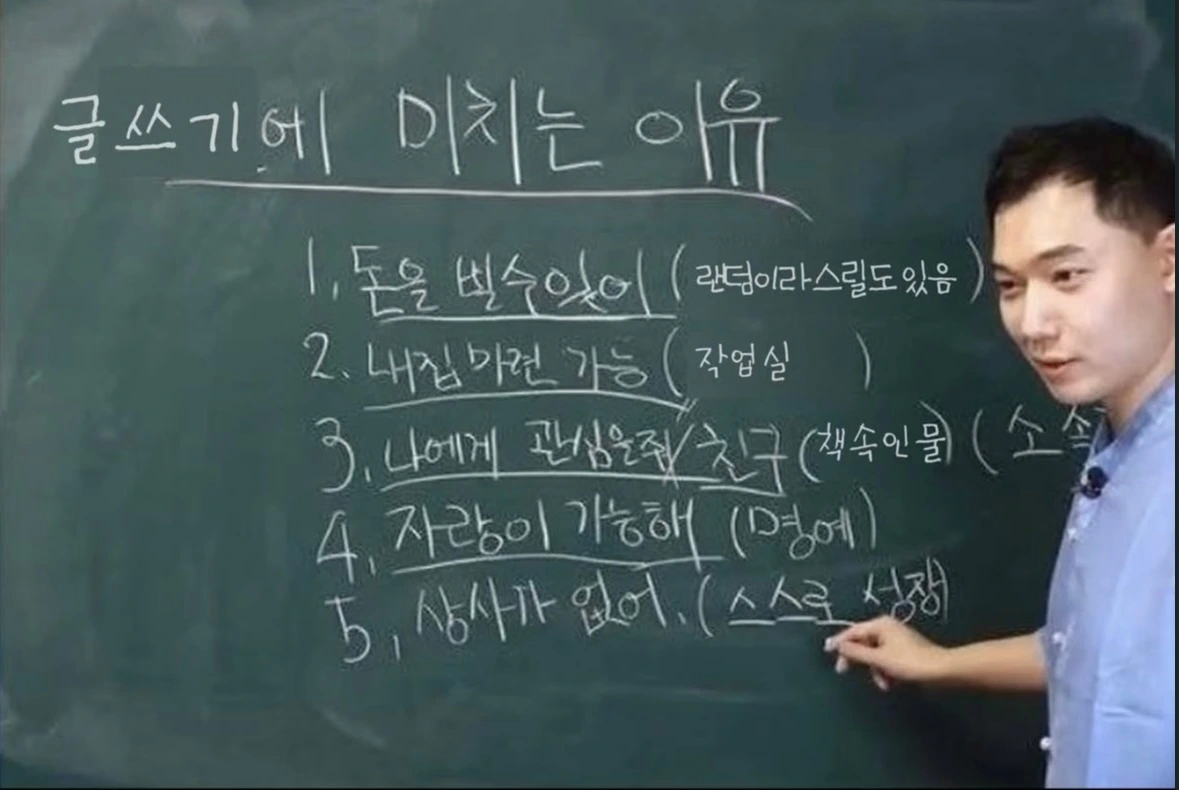 글쓰기에 미치는 이유
1. 돈을 벌수있어 (랜덤이라스릴도있음)
2. 내집마련 가능 (작업실)
3. 나에게 관심을줘/친구 (책속인물) (소속
4. 자랑이 가능해 (명예)
5. 상사가 없어. (스스로 성장)